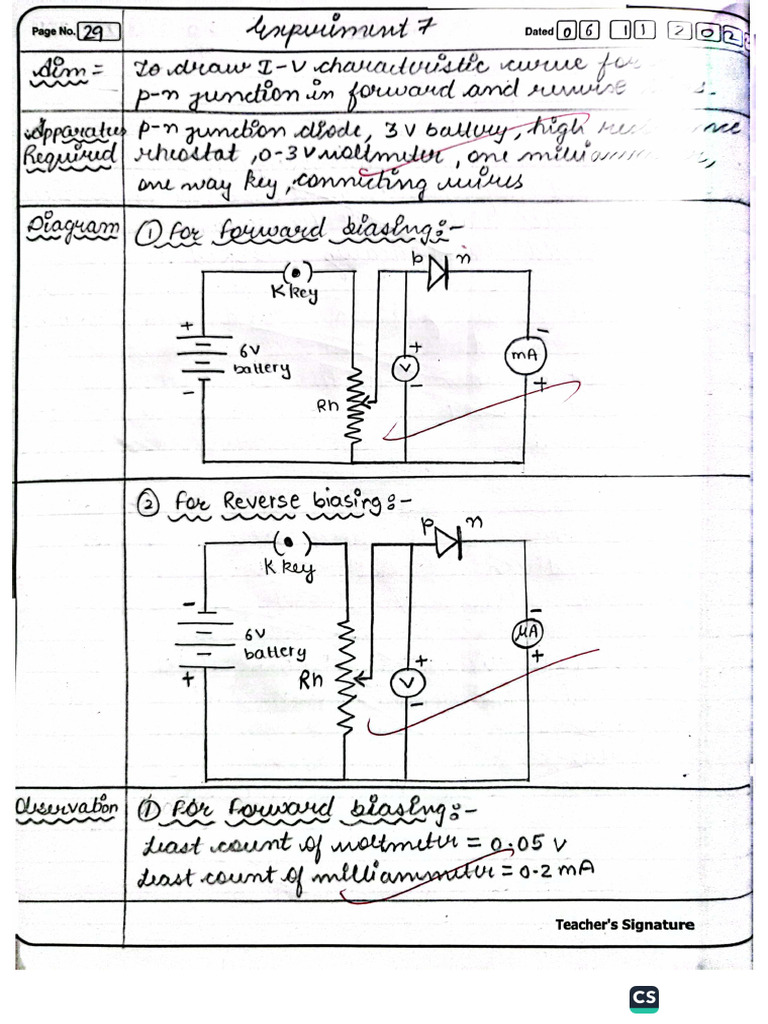 Page No. 29
Experiment 7
Dated 06 11 202
Aim =
To draw I-V characteristic curve for
p-n junction in forward and reverse
Apparatus
Required
p-n junction diode, 3V battery, high
rheostat, 0-3 V voltmeter, one
one way key, connecting wires
Diagram
① For forward biasing:-
p n
K key
+
6V
battery
-
Rh
+
V
-
-
mA
+
② For Reverse biasing:-
p n
K key
-
6V
battery
+
Rh
+
V
-
-
μA
+
Observation
① For forward biasing:-
Least count of voltmeter = 0.05 V
Least count of milliammeter = 0.2 mA
Teacher's Signature
CS